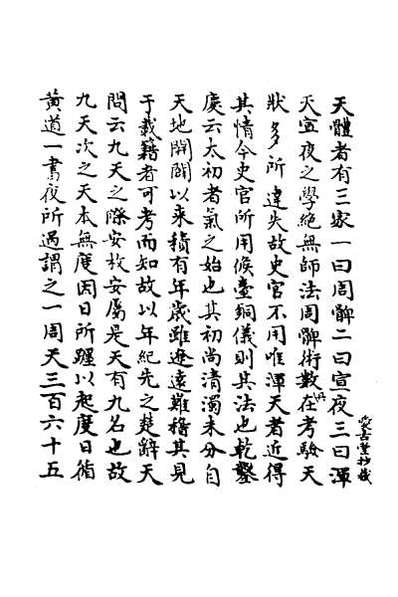 天體者有三家一曰周髀二曰宣夜三曰渾
天宣夜之學絕無師法周髀術數在考驗天
狀多所違失故史官不用唯渾天者近得
其情今史官所用候臺銅儀則其法也乾鑿
度云太初者氣之始也其初尚清濁未分自
天地開闢以来積有年歲雖遼遠難稽其見
于載籍者可考而知故以年紀先之楚辭天
問云九天之際安放安屬是天有九名也故
九天次之天本無度因日所躔以起度日循
黃道一晝夜所過謂之一周天三百六十五